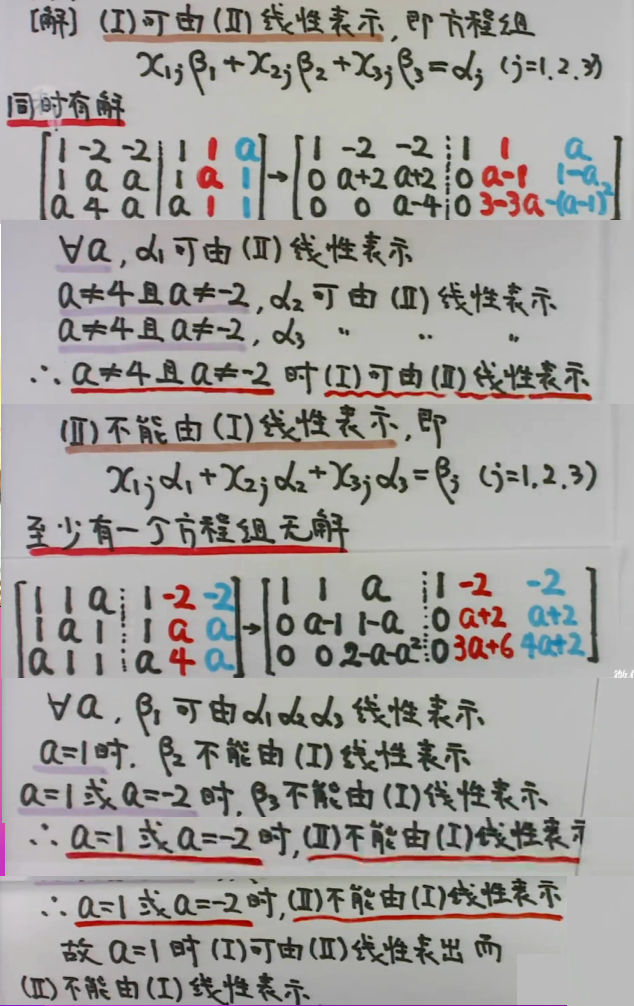 [解] (I)可由(II)线性表示,即方程组
x₁ⱼβ₁+x₂ⱼβ₂+x₃ⱼβ₃=αⱼ (j=1.2.3)
同时有解
[1 -2 -2 | 1 1 a] → [1 -2 -2 ⋮ 1 1 a]
[1 a a | 1 a 1] [0 a+2 a+2 ⋮ 0 a-1 1-a]
[a 4 a | a 1 1] [0 0 a-4 ⋮ 0 3-3a -(a-1)²]
∀a, α₁可由(II)线性表示
a≠4且a≠-2, α₂可由(II)线性表示
a≠4且a≠-2, α₃ 〃 〃 〃
∴ a≠4且a≠-2 时(I)可由(II)线性表示
(II)不能由(I)线性表示,即
x₁ⱼα₁+x₂ⱼα₂+x₃ⱼα₃=βⱼ (j=1.2.3)
至少有一个方程组无解
[1 1 a ⋮ 1 -2 -2] → [1 1 a ⋮ 1 -2 -2]
[1 a 1 ⋮ 1 a a] [0 a-1 1-a ⋮ 0 a+2 a+2]
[a 1 1 ⋮ a 4 a] [0 0 2-a-a² ⋮ 0 3a+6 4a+2]
∀a, β₁可由α₁α₂α₃线性表示
a=1时. β₂不能由(I)线性表示
a=1或a=-2时, β₃不能由(I)线性表示.
∴ a=1或a=-2时,(II)不能由(I)线性表示
∴ a=1或a=-2时,(II)不能由(I)线性表示
故 a=1时(I)可由(II)线性表出而
(II)不能由(I)线性表示.